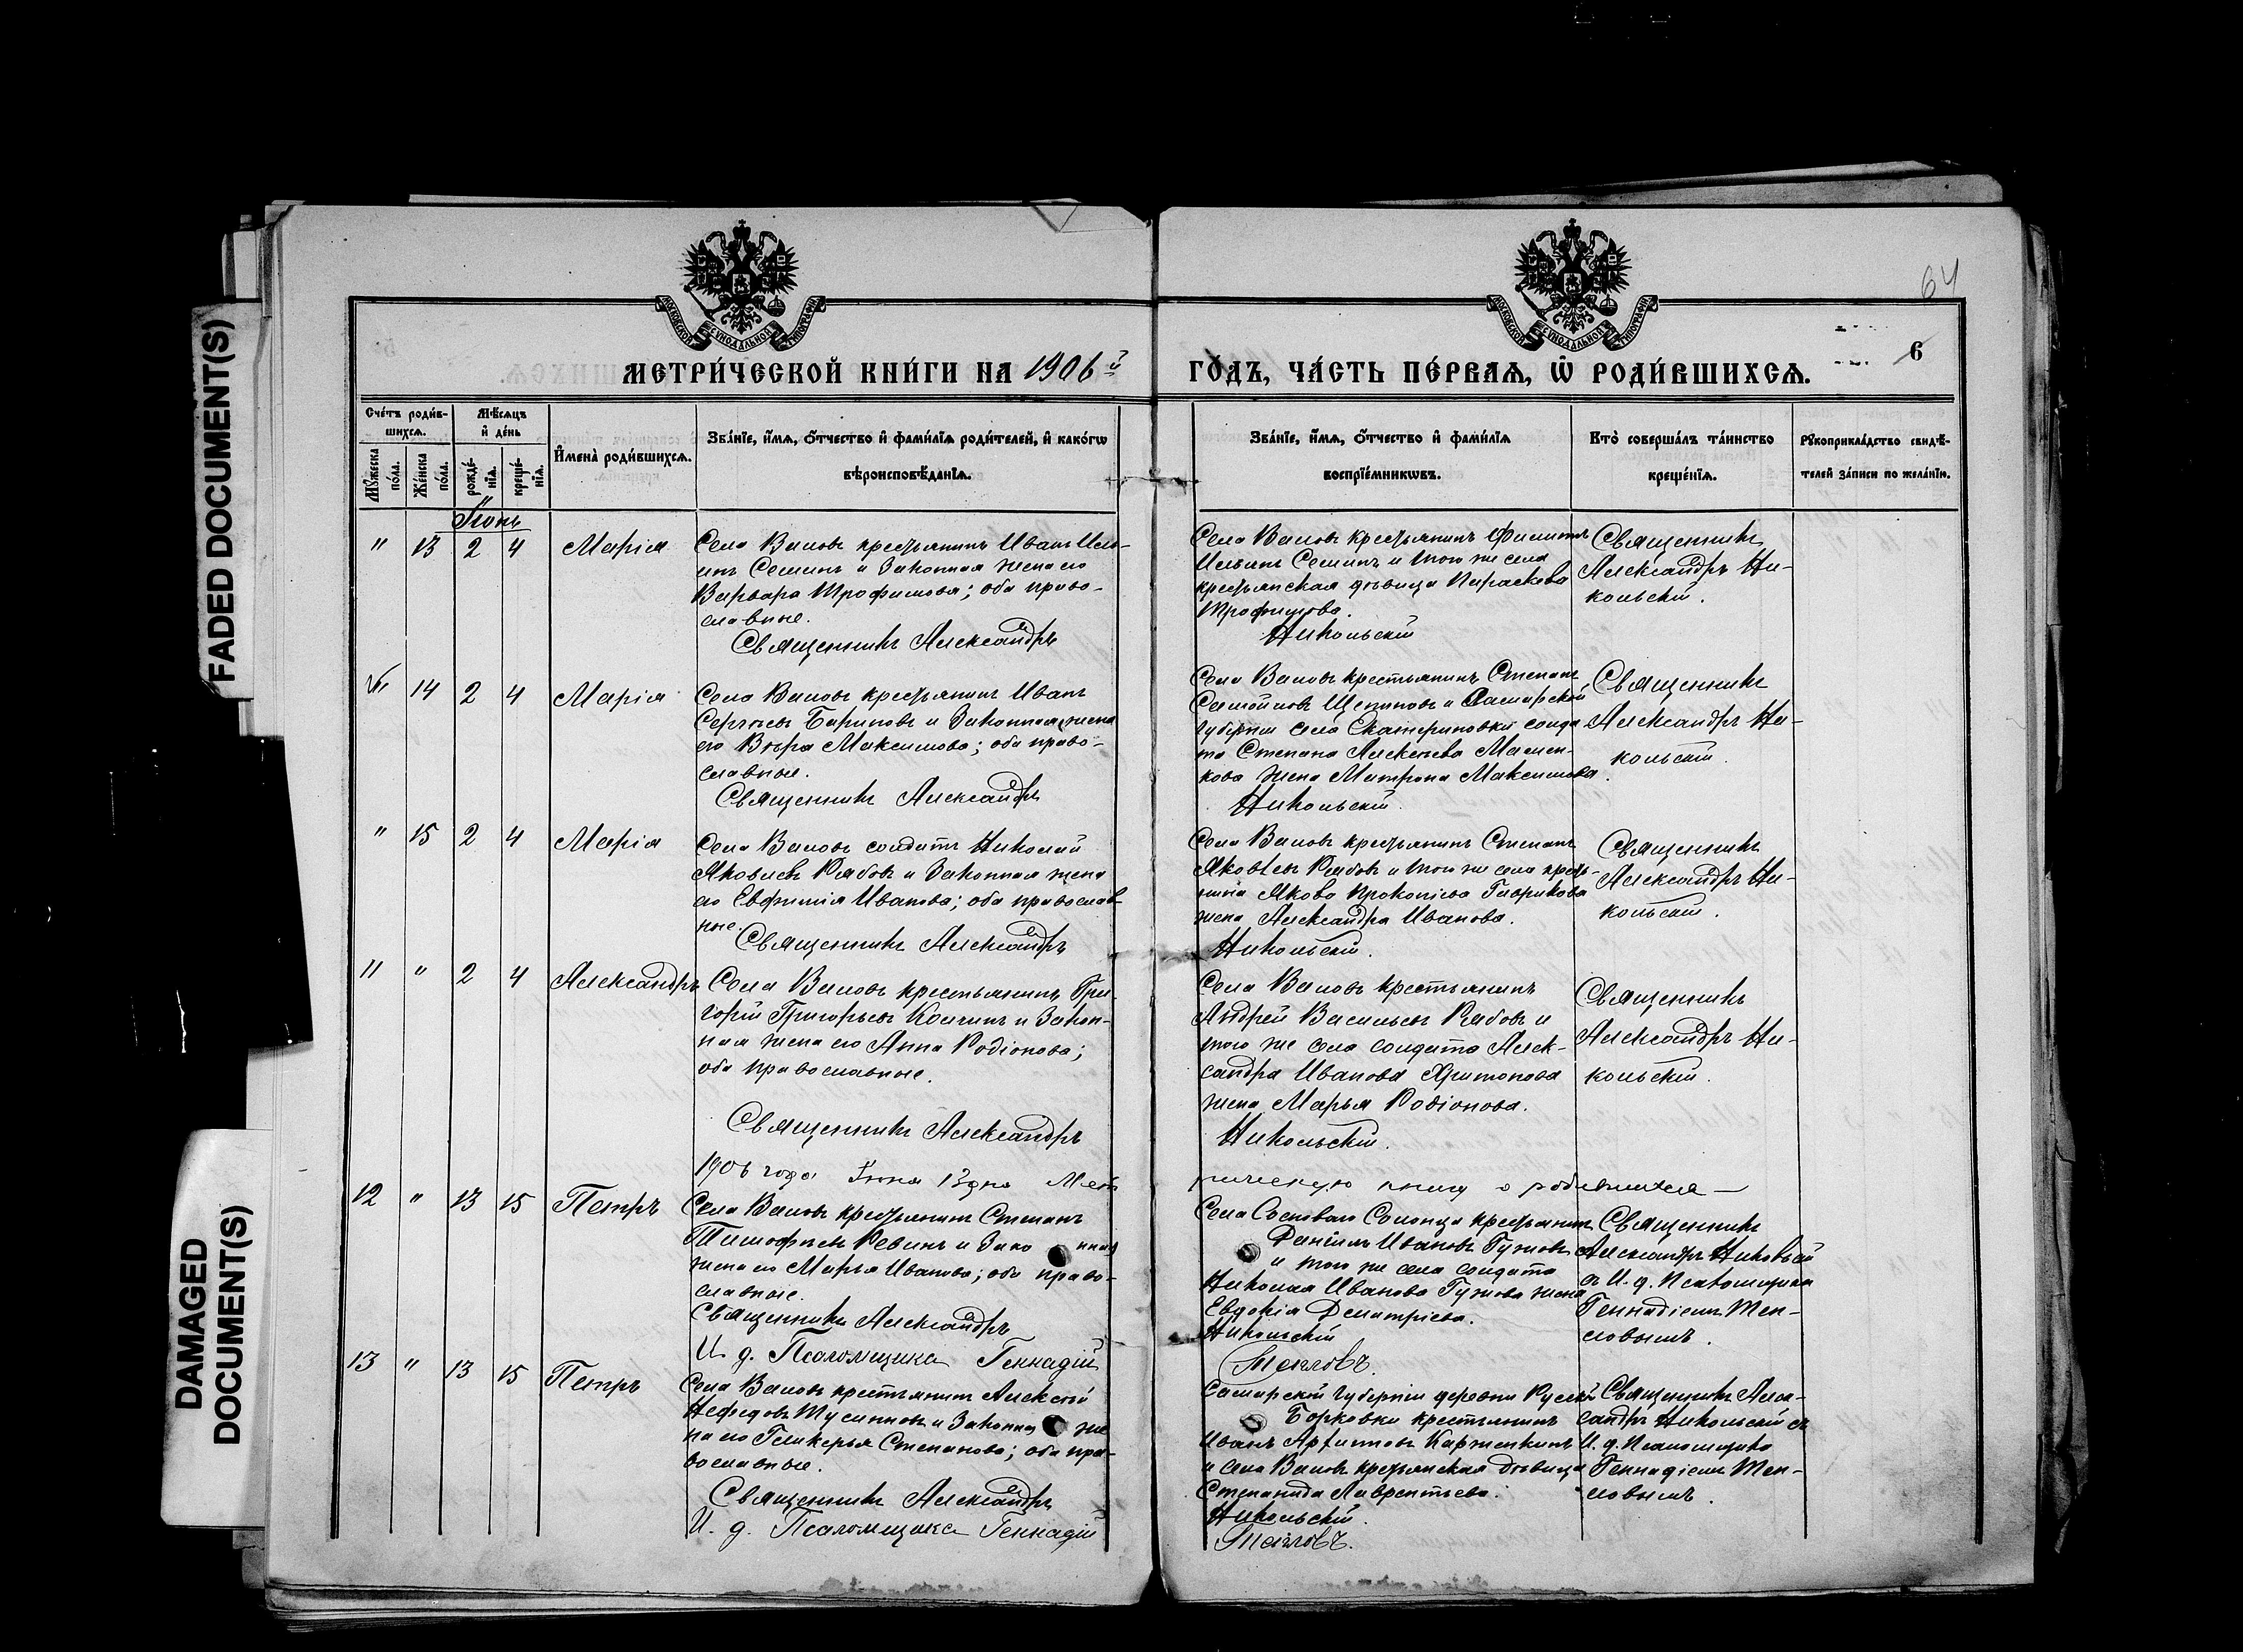 FADED DOCUMENT(S)
DAMAGED
DOCUMENT(S)
64
6
МОСКОВСКОЙ СУНОДАЛЬНОЙ ТИПОГРАФІИ
МОСКОВСКОЙ СУНОДАЛЬНОЙ ТИПОГРАФІИ
МЕТРИ́ЧЕСКОЙ КНИ́ГИ НА 1906й ГО́ДЪ, ЧА́СТЬ ПЕ́РВАѦ, Ѽ РОДИ́ВШИХСѦ.
Сче́тъ роди́в-
шихсѧ.
Мꙋ́жеска по́ла.
Же́нска по́ла.
Мѣ́сѧцъ
и҆ де́нь
рожде́нїѧ.
креще́нїѧ.
И҆мена̀ роди́вшихсѧ.
Зва́нїе, и҆́мѧ, ѻ҆́тчество и҆ фами́лїѧ роди́телей, и҆ како́гѡ
вѣроисповѣ́данїѧ.
Зва́нїе, и҆́мѧ, ѻ҆́тчество и҆ фами́лїѧ
воспрїе́мникѡвъ.
Кто̀ соверша́лъ та́инство
креще́нїѧ.
Рꙋкоприкла́дство свидѣ́-
телей за́писи по жела́нїю.
Іюнь
" 13 2 4 Марія
Села Валовъ крестьянинъ Иванъ Иль-
инъ Семинъ и законная жена его
Варвара Трофимова; оба право-
славные.
Священникъ Александръ
Села Валовъ крестьянинъ Филиппъ
Ильинъ Семинъ и того же села
крестьянская дѣвица Параскева
Трофимова.
Никольскій
Священникъ
Александръ Ни-
кольскій.
14 2 4 Марія
Села Валовъ крестьянинъ Иванъ
Сергѣевъ Бариновъ и законная жена
его Вѣра Максимова; оба право-
славные.
Священникъ Александръ
Села Валовъ крестьянинъ Степанъ
Самойловъ Щепиновъ и Самарской
губерніи села Екатериновки солда
та Степана Алексѣева
жена Матрона Максимова.
Никольскій.
Священникъ
Александръ Ни-
кольскій.
" 15 2 4 Марія
Села Валовъ солдатъ Николай
Яковлевъ Рябовъ и законная жена
его Евфимія Иванова; оба православ-
ные.
Священникъ Александръ
Села Валовъ крестьянинъ Степанъ
Яковлевъ Рябовъ и того же села кресть-
янина Якова Прокопіева Гаврикова
жена Александра Иванова.
Никольскій.
Священникъ
Александръ Ни-
кольскій.
11 " 2 4 Александръ
Села Валовъ крестьянинъ Гри-
горій Григорьевъ и закон-
ная жена его Анна Родіонова;
оба православные.
Священникъ Александръ
Села Валовъ крестьянинъ
Андрей Васильевъ Рябовъ и
того же села солдата Алек-
сандра Иванова Харитонова
жена Марья Родіонова.
Никольскій.
Священникъ
Александръ Ни-
кольскій.
1906 года Іюня 13 дня Мет
рическую книгу о родившихся —
12 " 13 15 Петръ
Села Валовъ крестьянинъ Степанъ
Тимофѣевъ Ревинъ и зако нная
жена его Марья Иванова; оба право-
славные.
Священникъ Александръ
И. д. Псаломщика Геннадій
Села Сосноваго Солонца крестьянинъ
Даніилъ Ивановъ Гужовъ
и того же села солдата
Николая Иванова Гужова жена
Евдокія Димитріева.
Никольскій
Тепловъ.
Священникъ
Александръ Никольскій
съ И. д. Псаломщика
Геннадіемъ Теп-
ловымъ.
13 " 13 15 Петръ
Села Валовъ крестьянинъ Алексѣй
Нефедовъ и законная же
на его Гликерья Степанова; оба пра-
вославные.
Священникъ Александръ
И. д. Псаломщика Геннадій
Самарской губерніи деревни Русской
Борковки крестьянинъ
Иванъ
и села Валовъ крестьянская дѣвица
Степанида Лаврентьева.
Никольскій.
Тепловъ.
Священникъ Алек-
сандръ Никольскій съ
И. д. Псаломщика
Геннадіемъ Теп-
ловымъ.